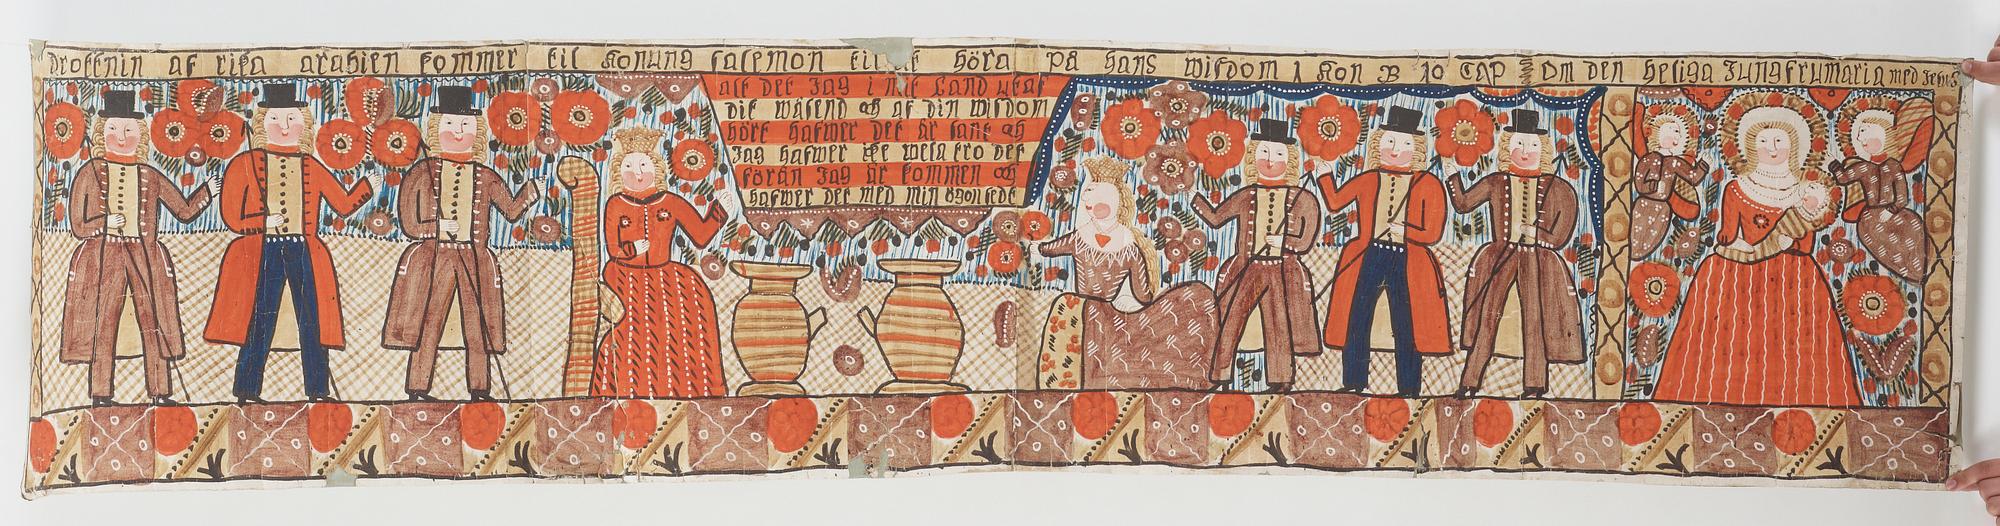 drottnin af rika arabien kommer til Konung salemon til höra på hans wisdom 1 Kon B 10 Cap Om den heliga Jungfrumaria med Jehus
alt det Jag i mit Land
dit wäsend och af din wisdom
hört hafwer det är sant och
Jag hafwer ike wela tro det
förän Jag är kommen och
hafwer det med min ögon sedt